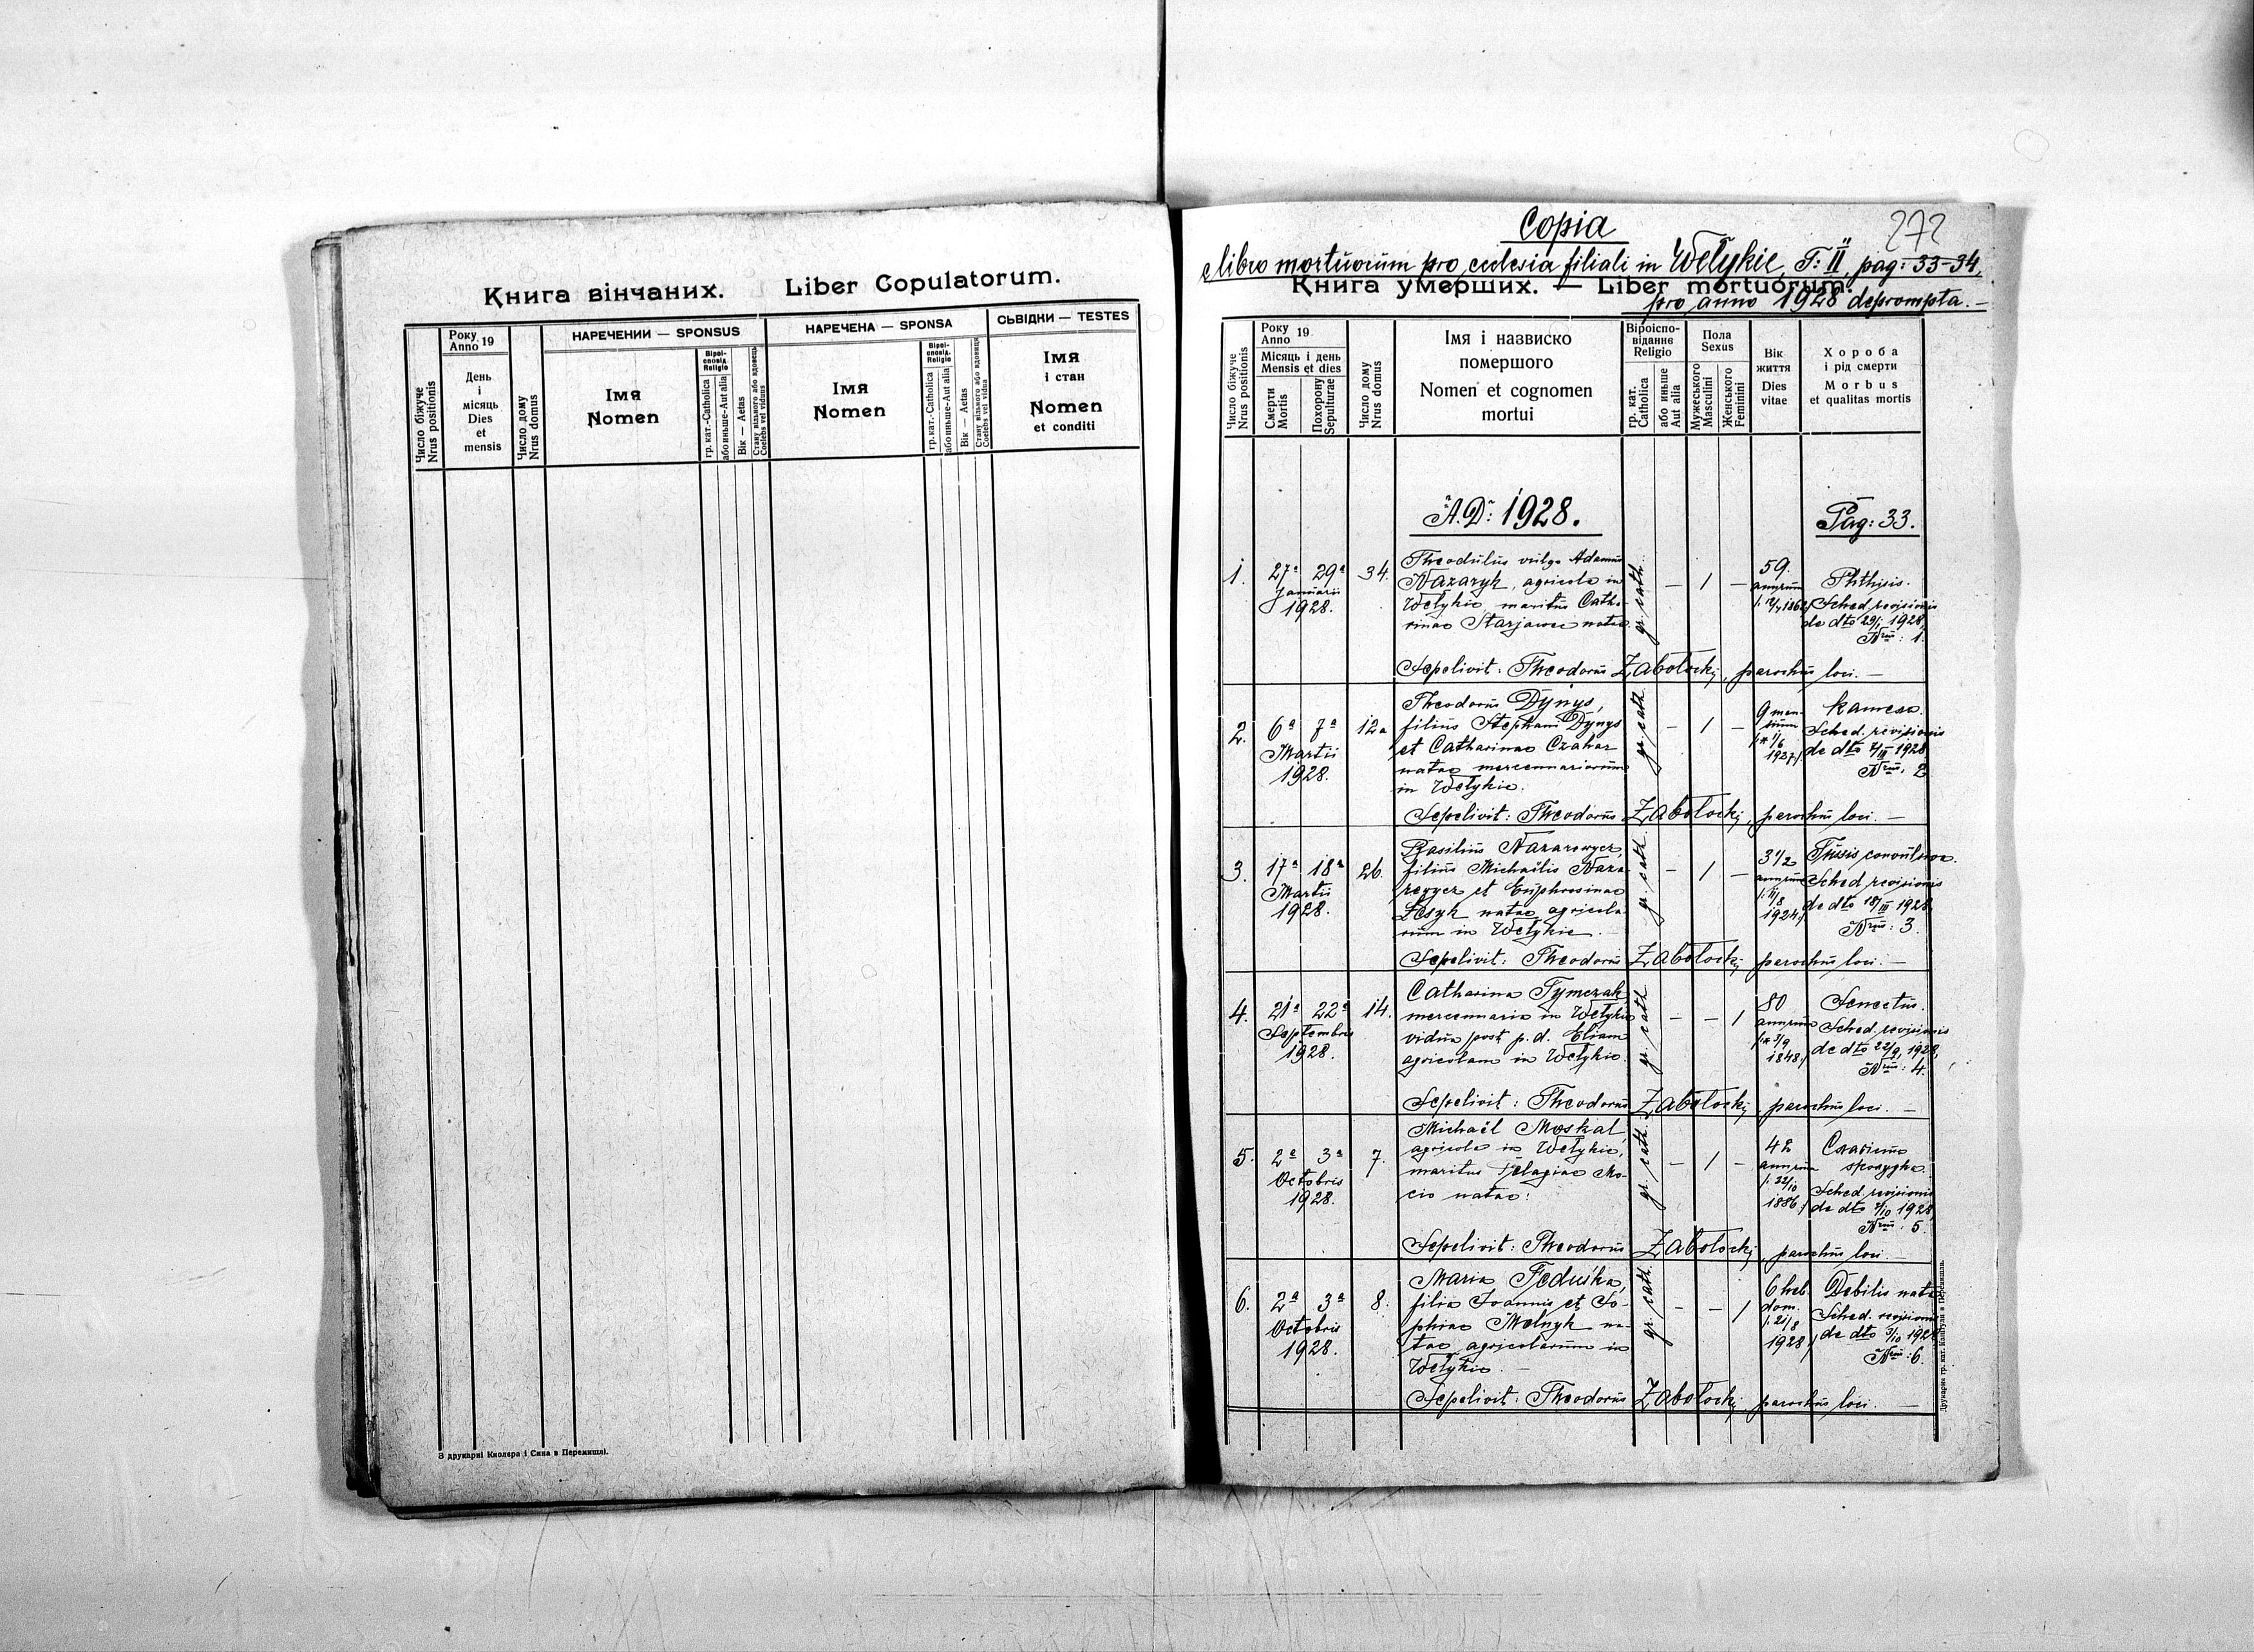 Книга вінчаних. Liber Copulatorum.
Число біжуче
Nrus positionis
Року
Anno 19
День
і
місяць
Dies
et
mensis
Число дому
Nrus domus
НАРЕЧЕНИИ — SPONSUS
Імя
Nomen
Віроі-
сповід.
Religio
гр. кат.-Catholica
або иньше-Aut alia
Вік — Aetas
Стану вільного або вдовець
Coelebs vel viduus
НАРЕЧЕНА — SPONSA
Імя
Nomen
Віроі-
сповід.
Religio
гр. кат.-Catholica
або иньше-Aut alia
Вік — Aetas
Стану вільного або вдовиця
Coelebs vel vidua
СЬВІДКИ — TESTES
Імя
і стан
Nomen
et conditi
З друкарні Кнолєра і Сина в Перемишлі.
272
Copia
e libro mortuorum pro ecclesia filiali in Wełykie, T: II, pag: 33-34,
Книга умерших. — Liber mortuorum.
pro anno 1928 deprompta. —
Число біжуче
Nrus positionis
Року 19
Anno
Місяць і день
Mensis et dies
Смерти
Mortis
Похорону
Sepulturae
Число дому
Nrus domus
Імя і назвиско
помершого
Nomen et cognomen
mortui
Віроіспо-
віданнє
Religio
гр. кат.
Catholica
або иньше
Aut alia
Пола
Sexus
Мужеського
Masculini
Женського
Feminini
Вік
життя
Dies
vitae
Хороба
і рід смерти
Morbus
et qualitas mortis
A.D: 1928.
Pag: 33.
1. 27a 29a
Januarii
1928.
34.
Theodulus vulgo Adamus
Nazaryk, agricola in
Wełykie, maritus Catha-
rinae Starjawec natae.
gr. cath. — 1 —
59.
annorum
Phthisis.
Sched. revisionis
de dto 29/I 1928,
Nrm: 1.
Sepelivit: Theodorus Zabołockij, parochus loci. —
2. 6a 7a
Martii
1928.
12a
Theodorus Dynys,
filius Stephani Dynys
et Catharinae Czahar
natae mercennariorum
in Wełykie.
gr. cath. — 1 —
9 men-
sium
1927/.
Sched. revisionis
de dto 7/III 1928
Nrm: 2
Sepelivit: Theodorus Zabołockij, parochus loci. —
3. 17a 18a
Martii
1928.
26.
Basilius Nazarewycz,
filius Michaëlis Naza-
rewycz et Euphrosinae
Łesyk natae agricola-
rum in Wełykie.
gr. cath. — 1 —
3 1/2
annorum
/: 11/8
1924/.
Tussis convulsiva.
Sched. revisionis
de dto 18/III 1928
Nrm: 3.
Sepelivit: Theodorus Zabołockij parochus loci. —
4. 21a 22a
Septembris
1928.
14.
Catharina Tymczak,
mercennaria in Wełykie
vidua post p. d. Eliam
agricolam in Wełykie.
gr. cath — — 1
80
annorum
/* 3/9
1848/.
Senectus.
Sched. revisionis
de dto 22/9, 1928,
Nrm: 4.
Sepelivit: Theodorus Zabołockij parochus loci. —
5. 2a 3a
Octobris
1928.
7.
Michaël Moskal,
agricola in Wełykie,
maritus Pelagiae Mo-
cio natae.
gr. cath. — 1 —
42
annorum
/: 22/10
1886/
Sched. revisionis
de dto 3/10 1928
Nrm: 5
Sepelivit: Theodorus Zabołockij, parochus loci. —
6. 2a 3a
Octobris
1928.
8.
Maria Feduśka,
filia Joannis et So-
phiae Melnyk na-
tae agricolarum in
Wełykie. —
gr. cath. — — 1
6 heb-
dom.
/: 21/8
1928/
Debilis nata
Sched. revisionis
de dto 3/10 1928
Nrm: 6.
Sepelivit: Theodorus Zabołockij, parochus loci. —